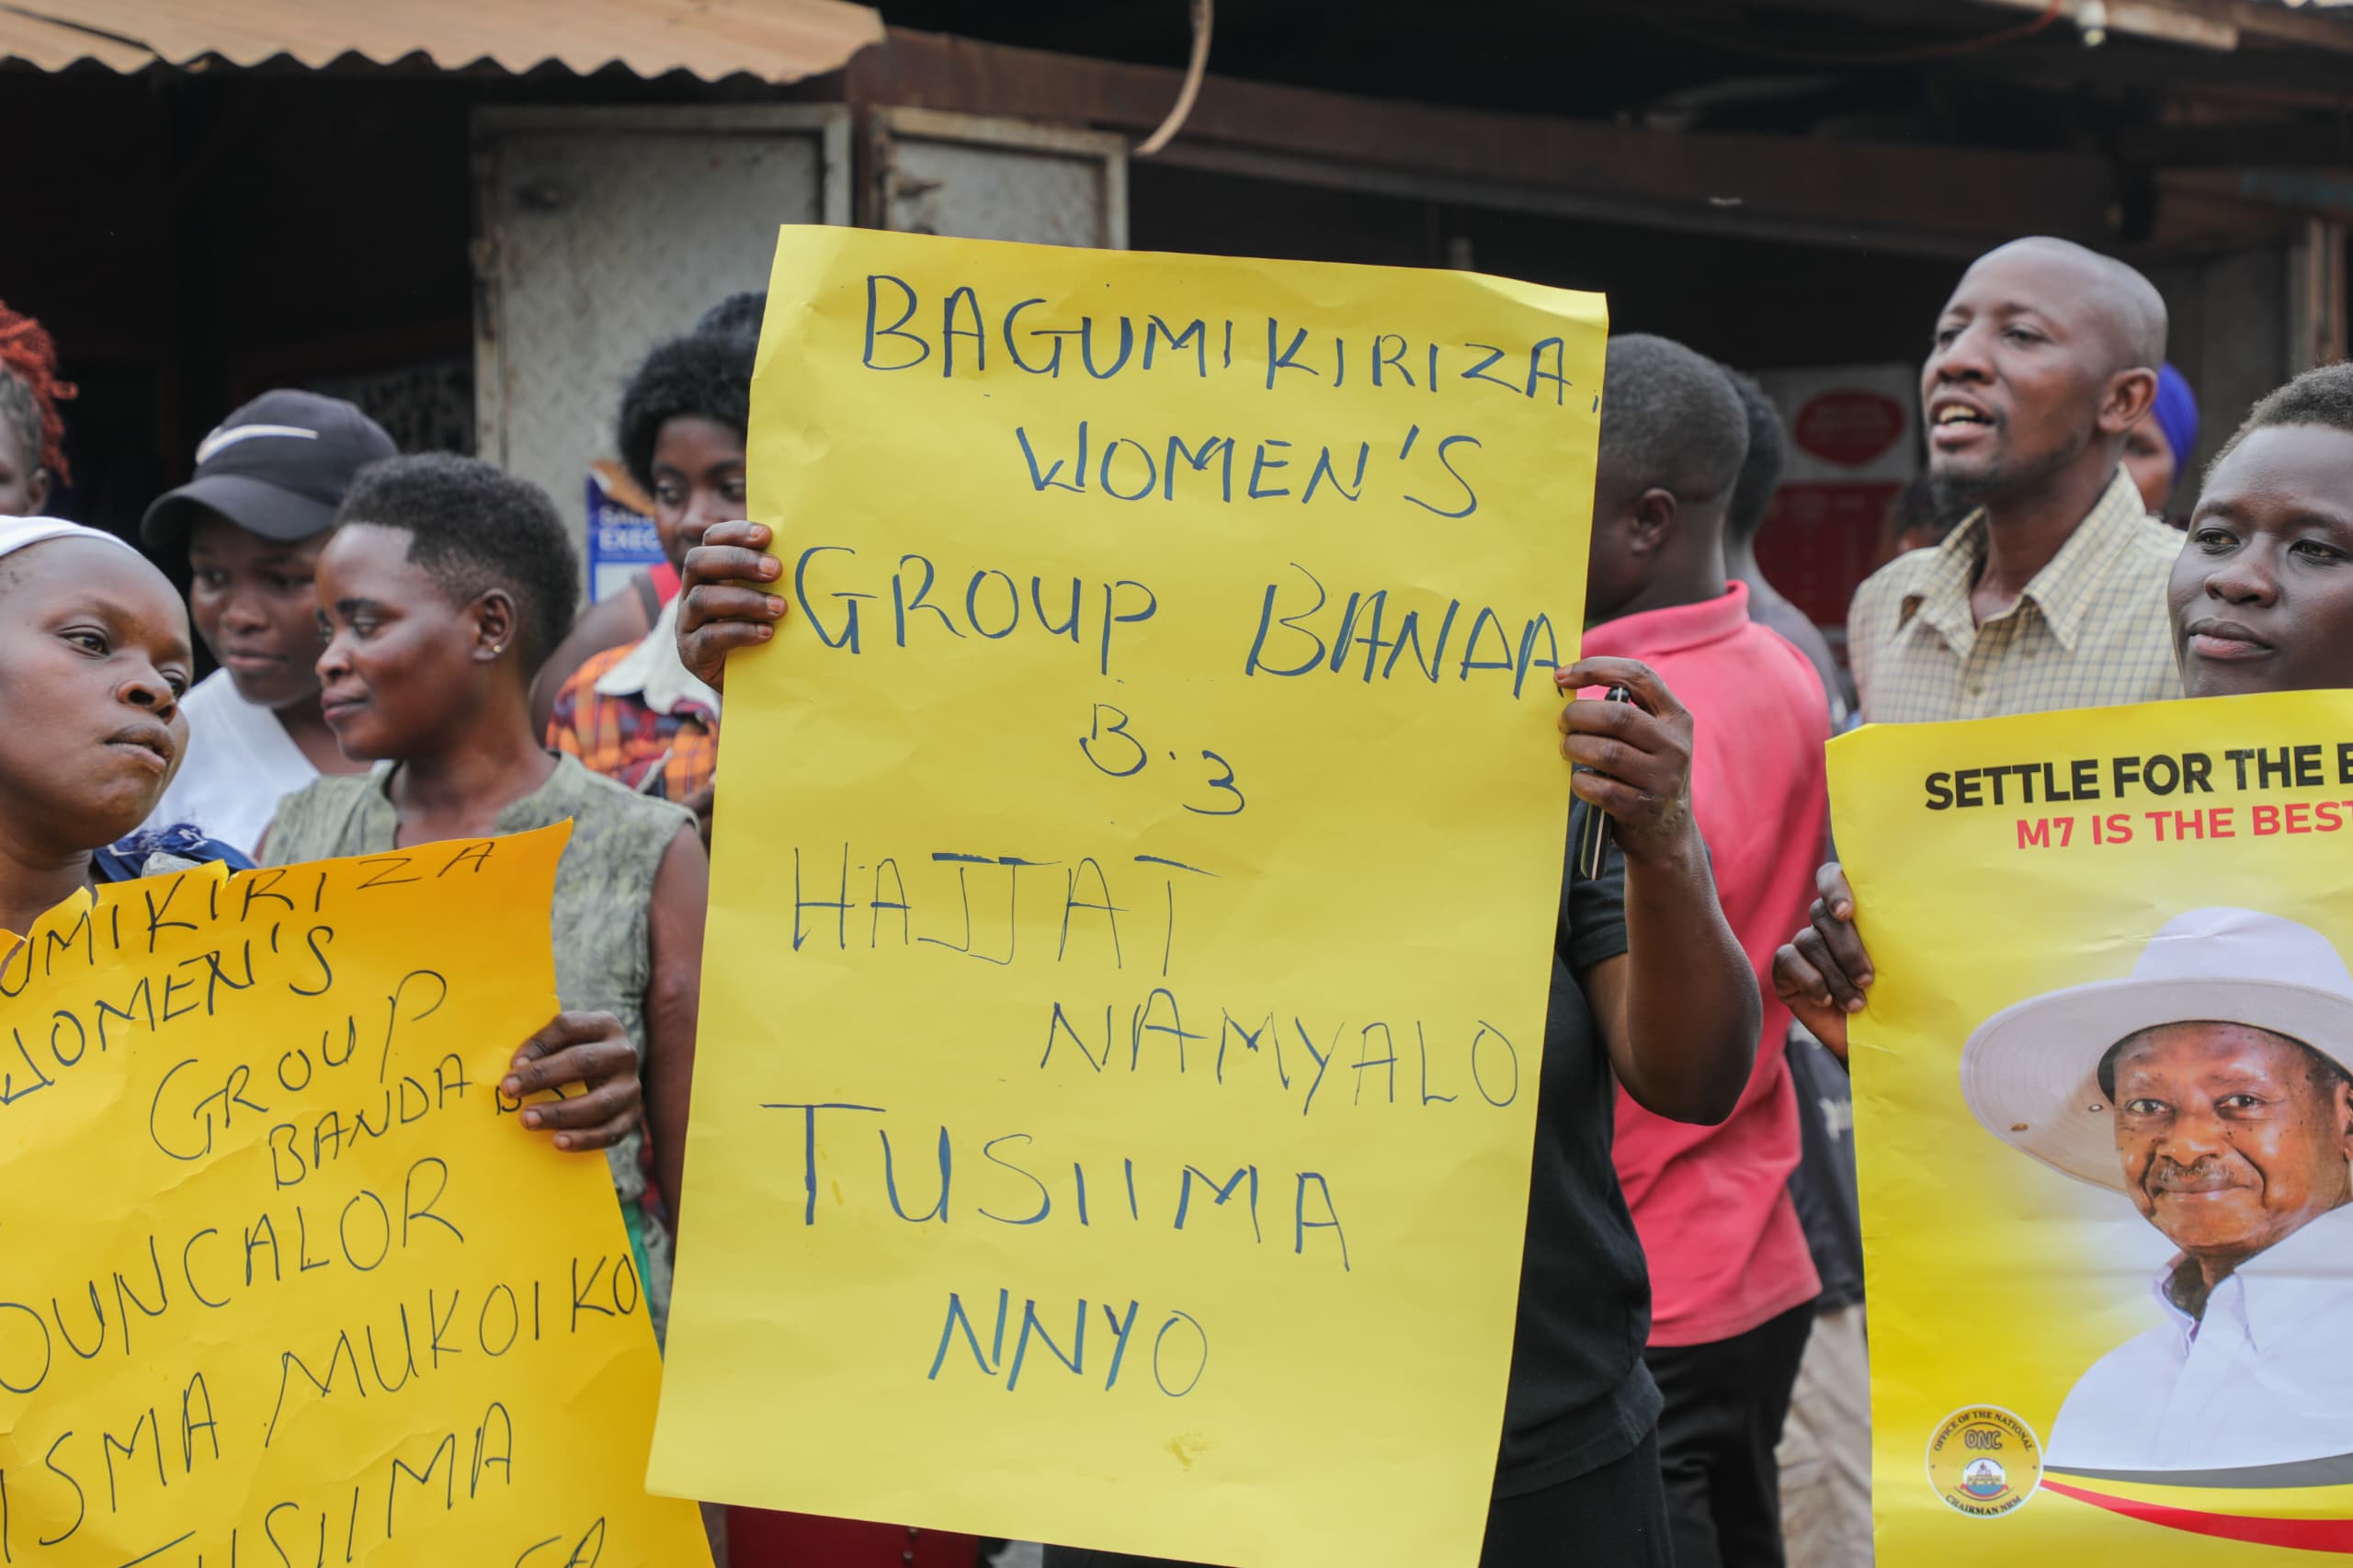 BAGUMIKIRIZA
WOMEN'S
GROUP BANDA
B.3
HAJJAT
NAMYALO
TUSIIMA
NNYO
UMIKIRIZA
WOMEN'S
GROUP
BANDA
OUNCALOR
ISMA MUKOIKO
TUSIIMA
SETTLE FOR THE B
M7 IS THE BEST
OFFICE OF THE NATIONAL
ONC
CHAIRMAN NRM
EXEC